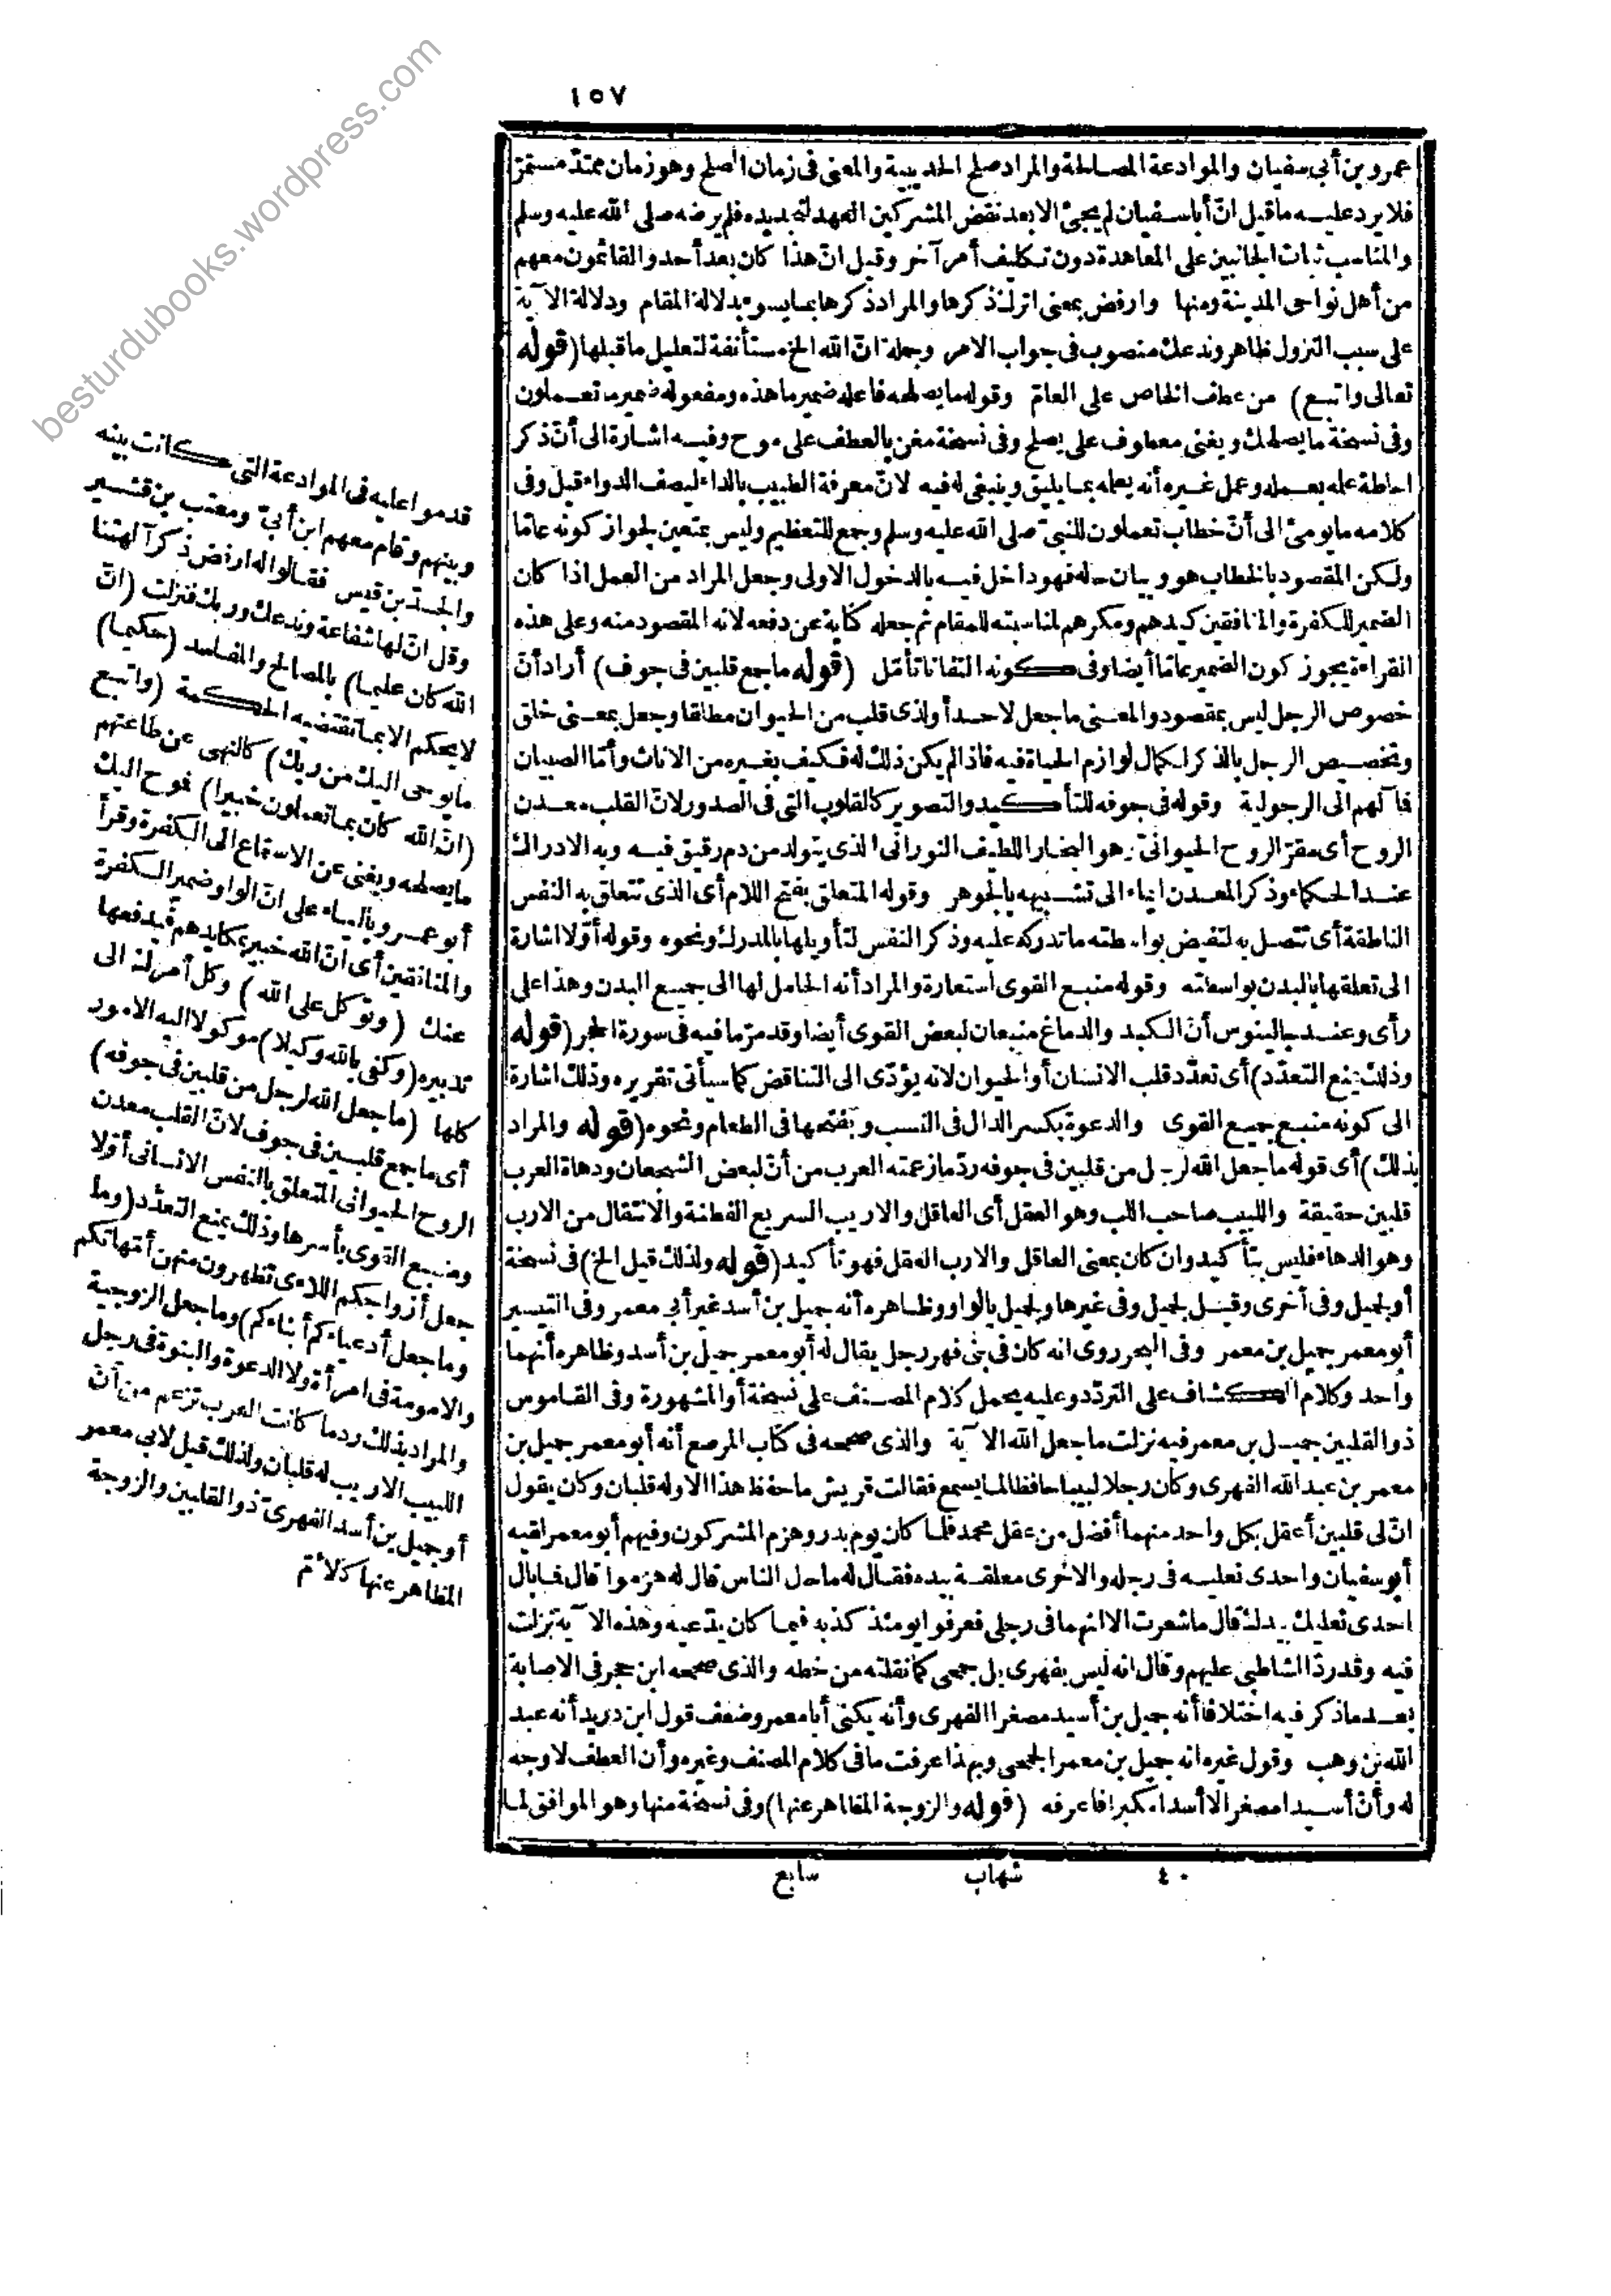 ١٥٧
عمرو بن أبي سفيان والموادعة المصالحة والمراد صلح الحديبية والمعنى فى زمان الصلح وهو زمان ممتدّ مستمرّ
فلا يرد عليه ما قيل انّ أبا سفيان لم يجئ الا بعد نقض المشركين العهد لتجديده فلم يرضه صلى الله عليه وسلم
والمناسب ثبات الجانبين على المعاهدة دون تكليف أمر آخر وقيل انّ هذا كان بعد أحد والقائمون معهم
من أهل نواحى المدينة ومنها وارفض بمعنى اترك ذكرها والمراد ذكرها بما يسوء بدلالة المقام ودلالة الآية
على سبب النزول ظاهر وندعك منصوب فى جواب الامر وجملة انّ الله الخ مستأنفة لتعليل ما قبلها (قوله
تعالى واتبع) من عطف الخاص على العامّ وقوله ما يصلحه فاعله ضمير ما هذه ومفعوله ضمير ما تعملون
وفى نسخة ما يصلحك ويغنى معطوف على يصلح وفى نسخة مغن بالعطف على موح وفيه اشارة الى أنّ ذكر
احاطة علمه بعمله وعمل غيره أنه يعلمه بما يليق وينبغى له فيه لانّ معرفة الطبيب بالداء ليصف الدواء قبل وفى
كلامه ما يومئ الى أنّ خطاب تعملون للنبىّ صلى الله عليه وسلم وجمع للتعظيم وليس بمتعين لجواز كونه عامّا
ولكن المقصود بالخطاب هو وبيان حاله فهو داخل فيه بالدخول الاولى وجعل المراد من العمل اذا كان
الضمير للكفرة والمنافقين كيدهم ومكرهم لمناسبته للمقام ثم جعله كناية عن دفعه لانه المقصود منه وعلى هذه
القراءة يجوز كون الضمير عامّا أيضا وفى كونه التفاتا تأمّل (قوله ما جمع قلبين فى جوف) أراد أنّ
خصوص الرجل ليس بمقصود والمعنى ما جعل لاحد أو لذى قلب من الحيوان مطلقا وجعل بمعنى خلق
وتخصيص الرجل بالذكر لكمال لوازم الحياة فيه فاذا لم يكن ذلك له فكيف بغيره من الاناث وأمّا الصبيان
فمآلهم الى الرجولية وقوله فى جوفه للتأكيد والتصوير كالقلوب التى فى الصدور لانّ القلب معدن
الروح أى مقرّ الروح الحيوانىّ وهو البخار اللطيف النورانى الذى يتولد من دم رقيق فيه وبه الادراك
عند الحكماء وذكر المعدن ايماء الى تشبيهه بالجوهر وقوله المتعلق بفتح اللام أى الذى تتعلق به النفس
الناطقة أى تتصل به لتفيض بواسطته ما تدركه عليه وذكر النفس لتأويلها بالمدرك ونحوه وقوله أوّلا اشارة
الى تعلقها بالبدن بواسطته وقوله منبع القوى استعارة والمراد أنه الحامل لها الى جميع البدن وهذا على
رأى وعند جالينوس أنّ الكبد والدماغ منبعان لبعض القوى أيضا وقد مرّ ما فيه فى سورة الحجر (قوله
وذلك يمنع التعدّد) أى تعدّد قلب الانسان أو الحيوان لانه يؤدّى الى التناقض كما سيأتى تقريره وذلك اشارة
الى كونه منبع جميع القوى والدعوة بكسر الدال فى النسب وبفتحها فى الطعام ونحوه (قوله والمراد
بذلك) أى قوله ما جعل الله لرجل من قلبين فى جوفه ردّ ما زعمته العرب من أنّ لبعض الشجعان ودهاة العرب
قلبين حقيقة واللبيب صاحب اللب وهو العقل أى العاقل والاريب السريع الفطنة والانتقال من الارب
وهو الدهاء فليس بتأكيد وان كان بمعنى العاقل والارب العقل فهو تأكيد (قوله ولذلك قيل الخ) فى نسخة
أو لجميل وفى أخرى وقيل لجميل وفى غيرها ولجميل بالواو وظاهره أنه جميل بن أسد غير أبى معمر وفى التيسير
أبو معمر جميل بن معمر وفى البحر روى انه كان فى بنى فهر رجل يقال له أبو معمر جميل بن أسد وظاهره أنهما
واحد وكلام الكشاف على التردّد وعليه يحمل كلام المصنف على نسخة أو المشهورة وفى القاموس
ذو القلبين جميل بن معمر فيه نزلت ما جعل الله الآية والذى صححه فى كتاب المرصع أنه أبو معمر جميل بن
معمر بن عبد الله الفهرى وكان رجلا لبيبا حافظا لما يسمع فقالت قريش ما حفظ هذا الا وله قلبان وكان يقول
انّ لى قلبين أعقل بكل واحد منهما أفضل من عقل محمد فلما كان يوم بدر وهزم المشركون وفيهم أبو معمر لقيه
أبو سفيان واحدى نعليه فى رجله والاخرى معلقة بيده فقال له ما حال الناس قال له هزموا قال فما بال
احدى نعليك بيدك قال ما شعرت الا انهما فى رجلى فعرفوا يومئذ كذبه فيما كان يدّعيه وهذه الآية نزلت
فيه وقد ردّ الشاطبى عليهم وقال انه ليس بفهرى بل جمحى كما نقلته من خطه والذى صححه ابن حجر فى الاصابة
بعد ما ذكر فيه اختلافا أنه جميل بن أسيد مصغرا الفهرى وأنه يكنى أبا معمر وضعف قول ابن دريد أنه عبد
الله بن وهب وقول غيره انه جميل بن معمر الجمحى وبهذا عرفت ما فى كلام المصنف وغيره وأن العطف لا وجه
له وأنّ أسيدا مصغر الا أسدا مكبرا فاعرفه (قوله والزوجة المظاهر عنها) وفى نسخة منها وهو الموافق لما
٤٠ شهاب سابع
قدموا عليه فى الموادعة التى كانت بينه
وبينهم وقام معهم ابن أبىّ ومعتب بن قشير
والجدّ بن قيس فقالوا له ارفض ذكر آلهتنا
وقل انّ لها شفاعة وندعك وربك فنزلت (انّ
الله كان عليما) بالمصالح والمفاسد (حكيما)
لا يحكم الا بما تقتضيه الحكمة (واتبع
ما يوحى اليك من ربك) كالنهى عن طاعتهم
(انّ الله كان بما تعملون خبيرا) فموح اليك
ما يصلحه ويغنى عن الاستماع الى الكفرة وقرأ
أبو عمرو بالياء على انّ الواو ضمير الكفرة
والمنافقين أى انّ الله خبير بمكايدهم فيدفعها
عنك (وتوكل على الله) وكل أمرك الى
تدبيره (وكفى بالله وكيلا) موكولا اليه الامور
كلها (ما جعل الله لرجل من قلبين فى جوفه)
أى ما جمع قلبين فى جوف لانّ القلب معدن
الروح الحيوانى المتعلق بالنفس الانسانى أوّلا
ومنبع القوى بأسرها وذلك يمنع التعدّد (وما
جعل أزواجكم اللاءى تظهرون منهن أمّهاتكم
وما جعل أدعياءكم أبناءكم) وما جعل الزوجية
والامومة فى امرأة ولا الدعوة والبنوة فى رجل
والمراد بذلك ردّ ما كانت العرب تزعم من أنّ
اللبيب الاريب له قلبان ولذلك قيل لابى معمر
أو جميل بن أسد الفهرىّ ذو القلبين والزوجة
المظاهر عنها كالأمّ
besturdubooks.wordpress.com